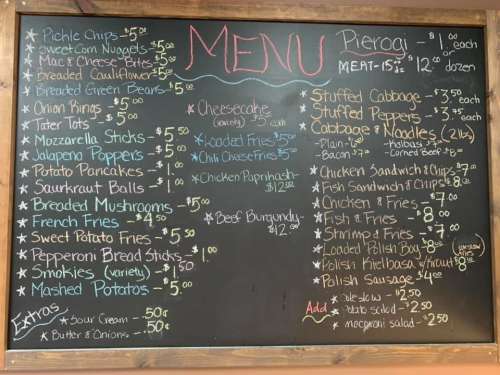 Pickle Chips - $5.00
Sweet Corn Nuggets - $5.00
Mac & Cheese Bites - $5.00
Breaded Cauliflower - $5.00
Breaded Green Beans - $5.00
Onion Rings - $5.00
Tater Tots - $5.00
Mozzarella Sticks - $5.50
Jalapeno Poppers - $5.00
Potato Pancakes - $1.00
Saurkraut Balls - $1.00
Breaded Mushrooms - $5.00
French Fries - $4.50
Sweet Potato Fries - $5.50
Pepperoni Bread Sticks - $1.00
Smokies (variety) - $1.50
Mashed Potatos - $5.00
Extras
Sour Cream - .50¢
Butter & Onions - .50¢
MENU
Cheesecake
(variety) $5 each
Loaded Fries $5.00
Chili Cheese Fries $5.00
Chicken Paprihash -
$12.00
Beef Burgundy -
$12.00
Pierogi - $1.00 each
or
$12.00 dozen
Stuffed Cabbage - $3.50 each
Stuffed Peppers - $3.75 each
Cabbage & Noodles (2 lbs)
- Plain - - Kolbasi -
- Bacon - - Corned Beef -
Chicken Sandwich & Chips $7.00
Fish Sandwich & Chips $8.00
Chicken & Fries - $7.00
Fish & Fries - $8.00
Shrimp & Fries - $7.00
Loaded Polish Boy $8.00
Polish Kielbasa w/Kraut $8.00
Polish Sausage - $4.00
Add
cole slaw - $2.50
Potato salad - $2.50
macaroni salad - $2.50